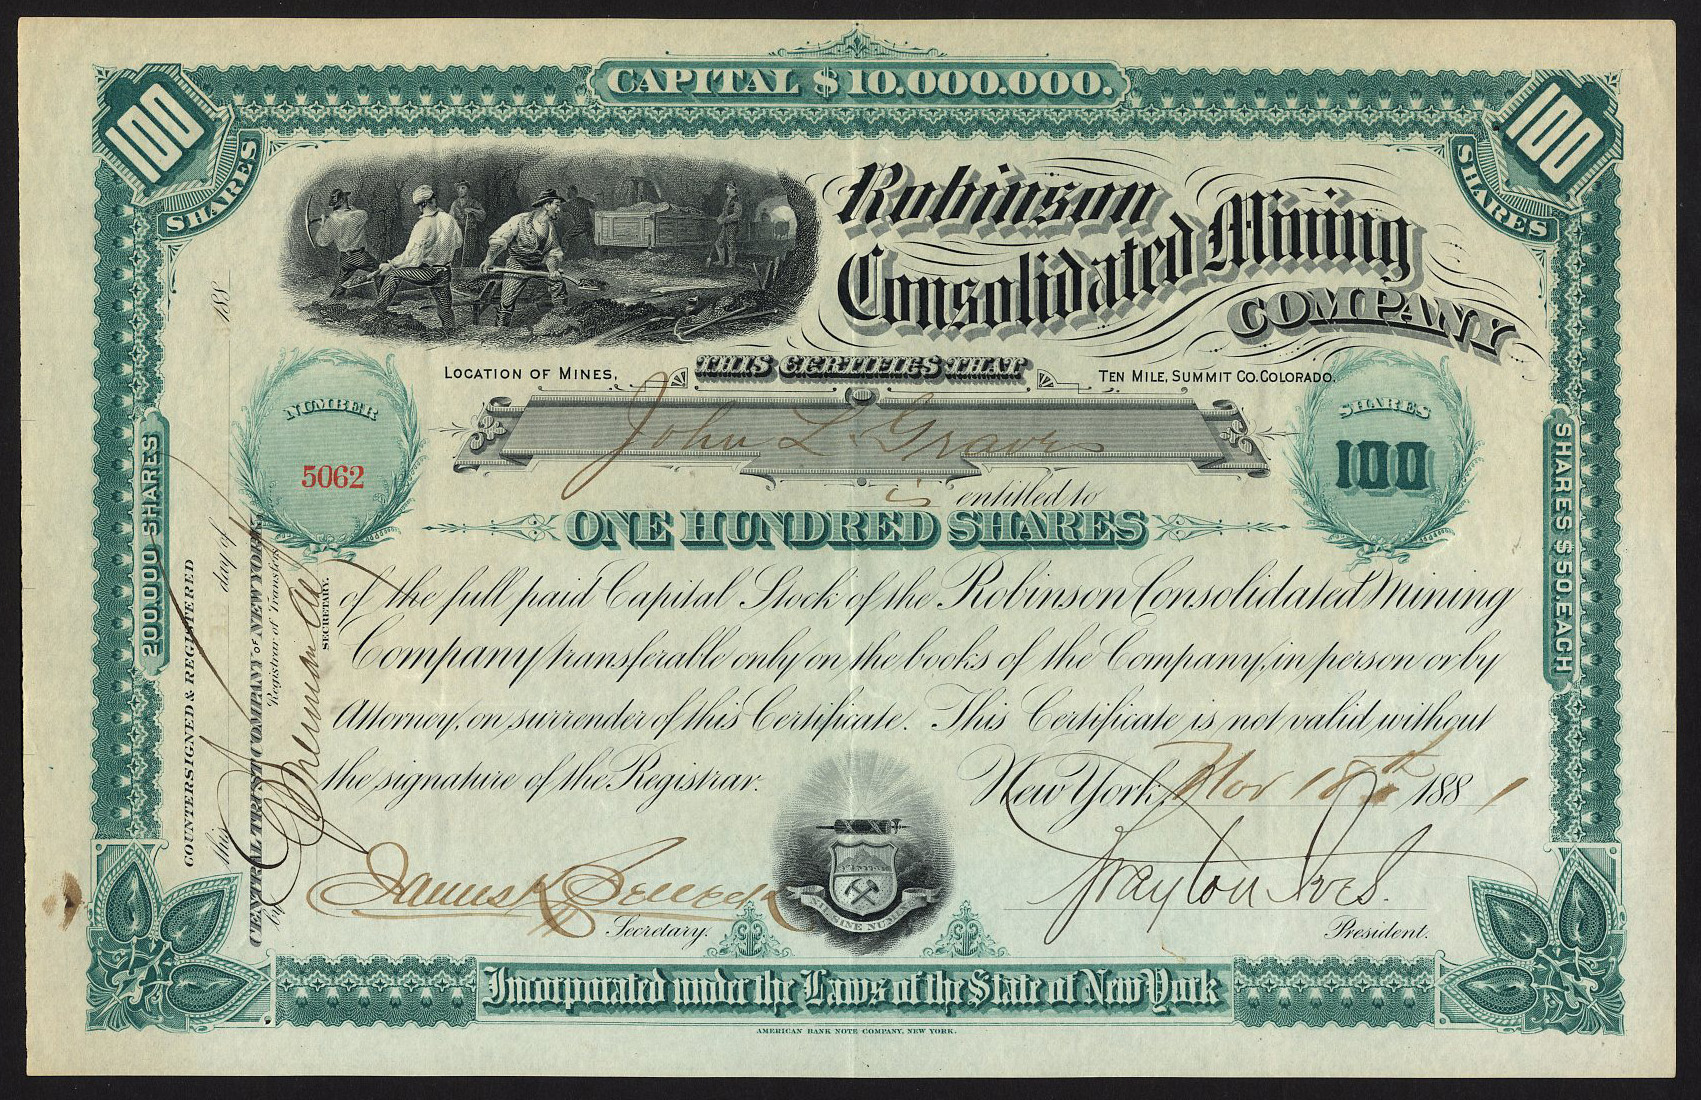 CAPITAL $10.000.000.
100 SHARES
100 SHARES
Robinson
Consolidated Mining
COMPANY
LOCATION OF MINES,
THIS CERTIFIES THAT
TEN MILE, SUMMIT CO. COLORADO.
NUMBER
5062
John L Graves
SHARES
100
is entitled to
ONE HUNDRED SHARES
of the full paid Capital Stock of the Robinson Consolidated Mining
Company, transferable only on the books of the Company, in person or by
Attorney, on surrender of this Certificate. This Certificate is not valid without
the signature of the Registrar.
New York, Nov 18th 1881
Secretary.
SINE NUMINE
Brayton Ives.
President.
Incorporated under the Laws of the State of New York
AMERICAN BANK NOTE COMPANY, NEW YORK.
200.000 SHARES
SHARES $50. EACH
COUNTERSIGNED & REGISTERED
this day of 188
CENTRAL TRUST COMPANY OF NEW YORK,
Registrar of Transfers
by
SECRETARY.